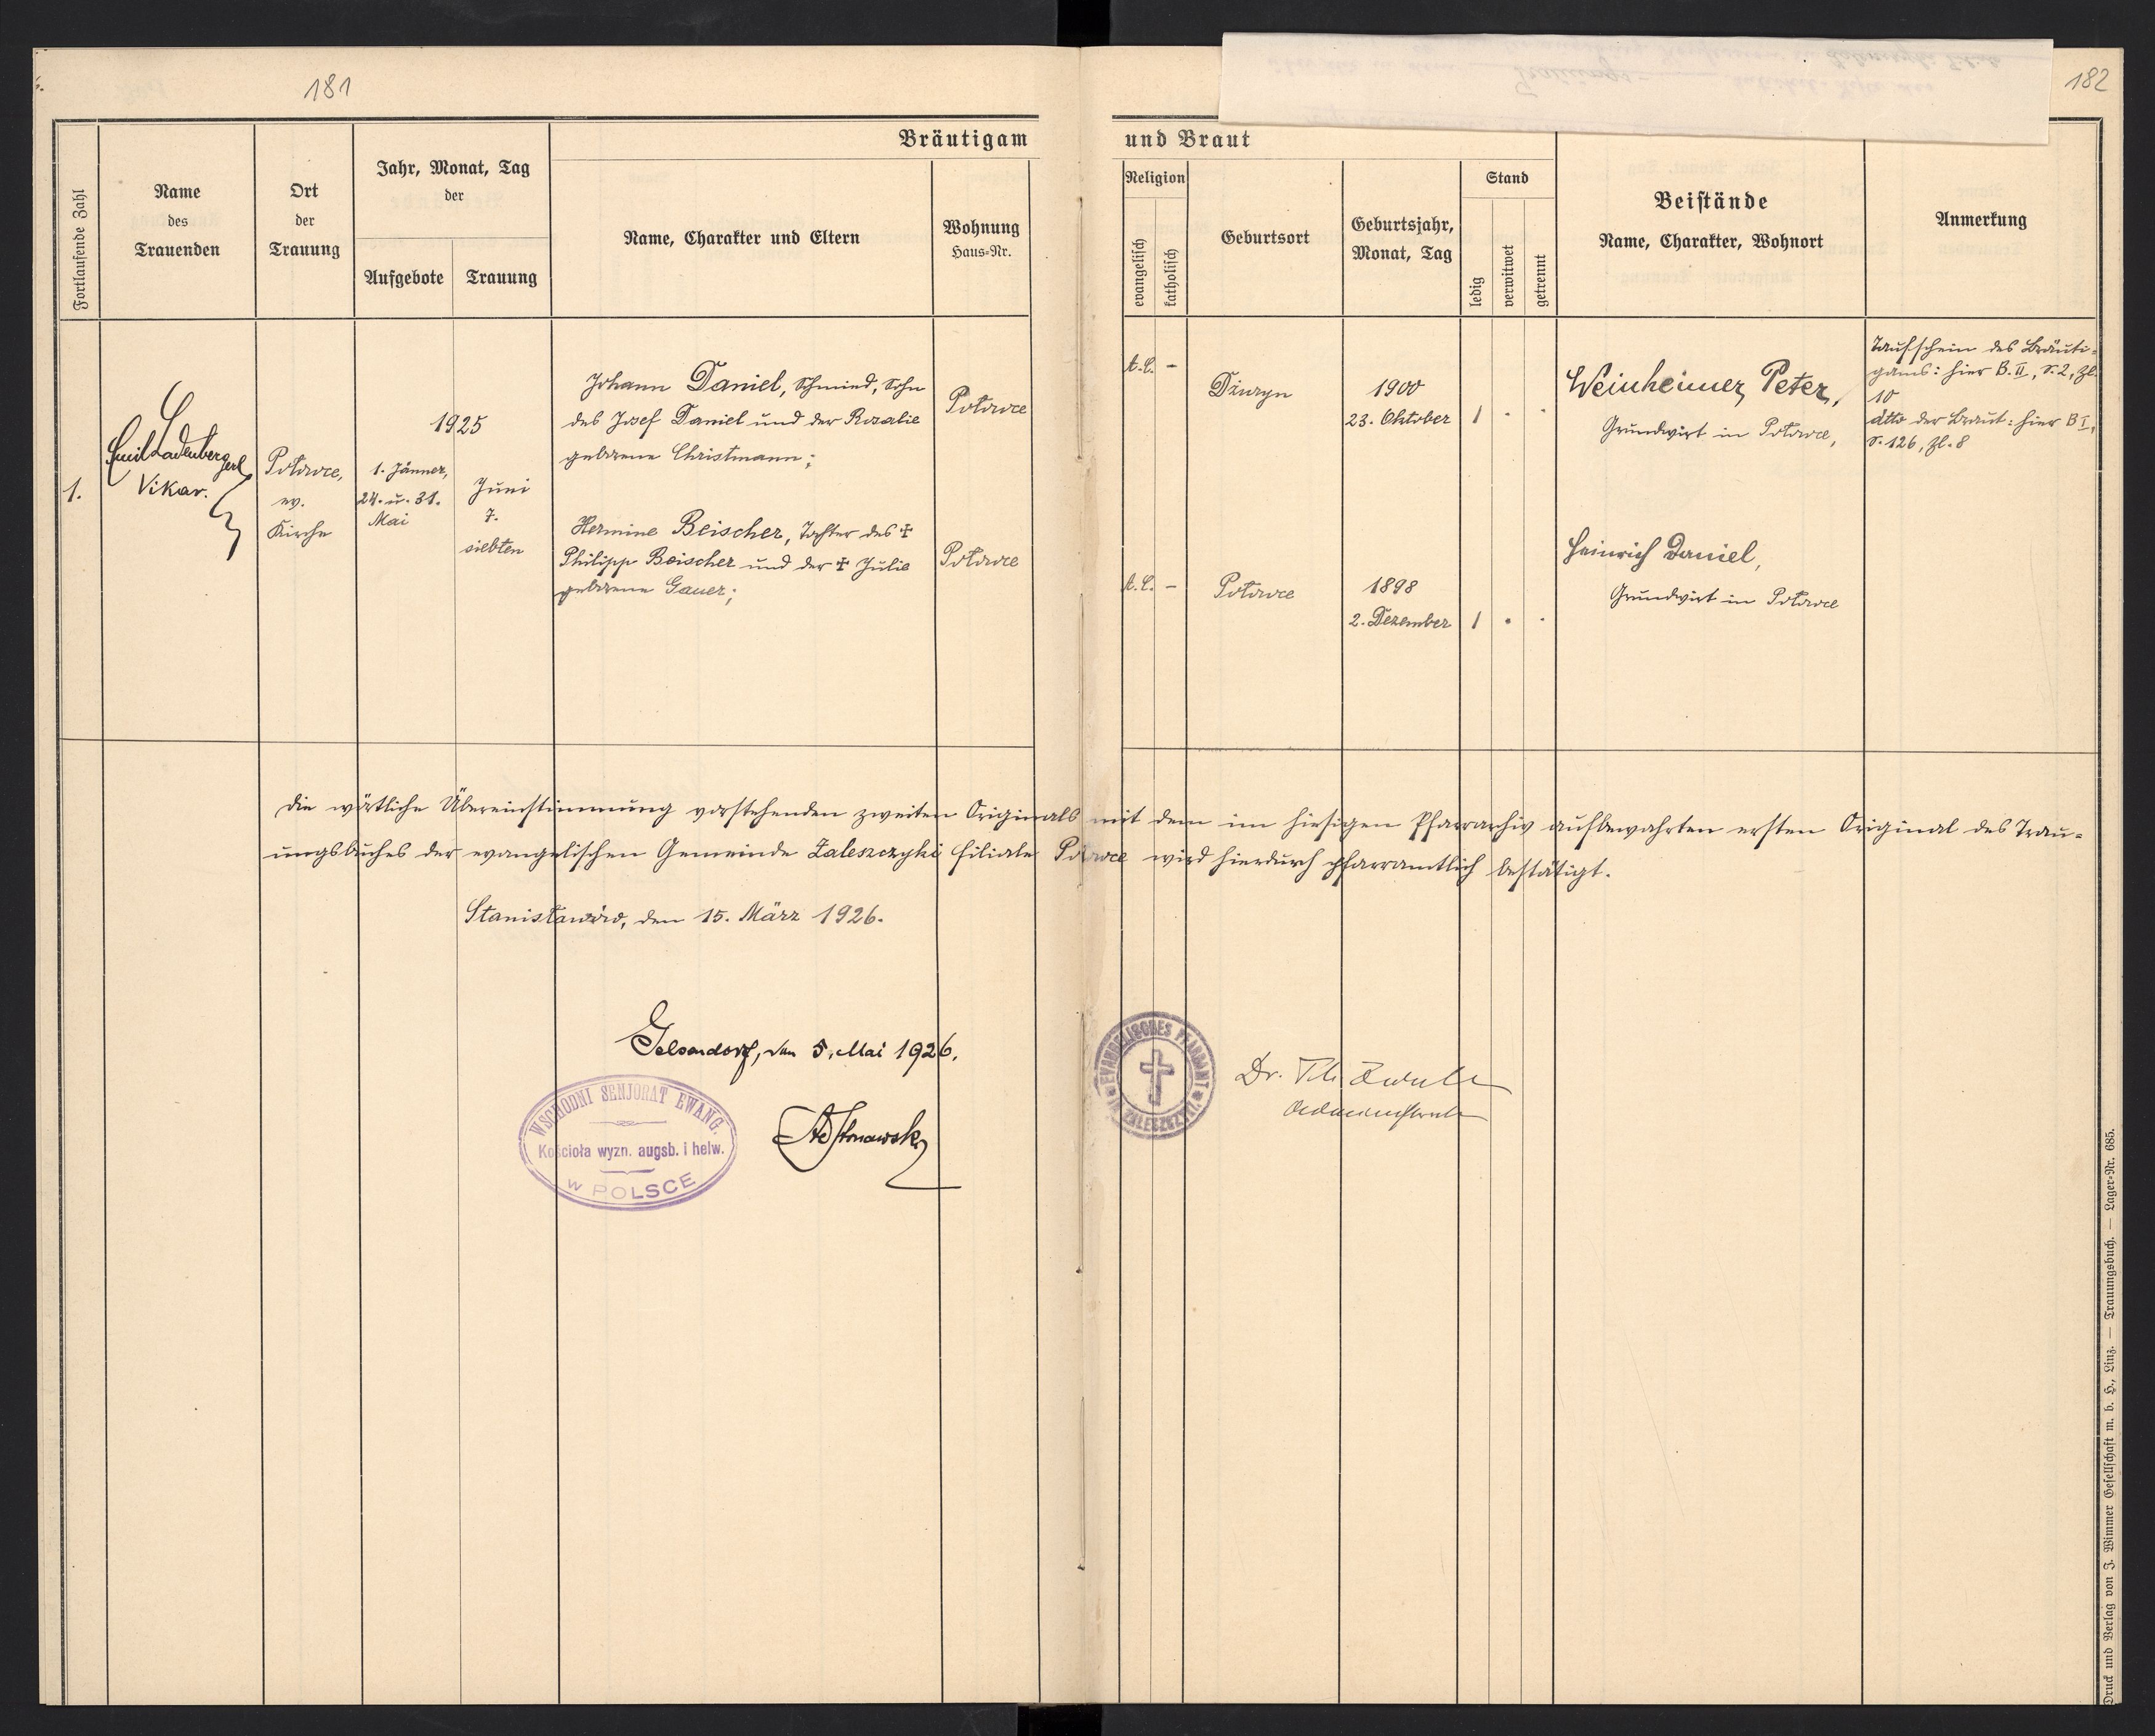 181
182
Bräutigam
und Braut
Fortlaufende Zahl
Name
des
Trauenden
Ort
der
Trauung
Jahr, Monat, Tag
der
Aufgebote
Trauung
Name, Charakter und Eltern
Wohnung
Haus=Nr.
Religion
evangelisch
katholisch
Geburtsort
Geburtsjahr,
Monat, Tag
Stand
ledig
verwitwet
getrennt
Beistände
Name, Charakter, Wohnort
Anmerkung
1.
Emil Ladenberger
Vikar.
Potoroce,
ev.
Kirche
1925
1. Jänner,
24. u. 31.
Mai
Juni
7.
siebten
Johann Daniel, Schmied, Sohn
des Josef Daniel und der Rosalie
geborene Christmann;
Potoroce
Hermine Beischer, Tochter des ‡
Philipp Beischer und der ‡ Julie
geborene Gauer;
Potoroce
A.C. –
Dzuryn
1900
23. Oktober
1 . .
A.C. –
Potoroce
1898
2. Dezember
1 . .
Weinheimer Peter,
Grundwirt in Potoroce,
Heinrich Daniel,
Grundwirt in Potoroce
Taufschein des Bräuti=
gams: hier B. II, S. 2, Zl.
10
dtto der Braut: hier B I,
S. 126, Zl. 8
Die wörtliche Übereinstimmung vorstehenden zweiten Originals mit dem im hiesigen Pfarrarchiv aufbewahrten ersten Original des Trau=
ungsbuches der evangelischen Gemeinde Zaleszczyki Filiale Potoroce wird hierdurch pfarramtlich bestätigt.
Stanisławów, den 15. März 1926.
Gelsendorf, den 5. Mai 1926.
WSCHODNI SENJORAT EWANG.
Kościoła wyzn. augsb. i helw.
w POLSCE
EVANGELISCHES PFARRAMT
IN ZALESZCZYKI
Dr.
Druck und Verlag von J. Wimmer Gesellschaft m. b. H., Linz. — Trauungsbuch. — Lager=Nr. 685.